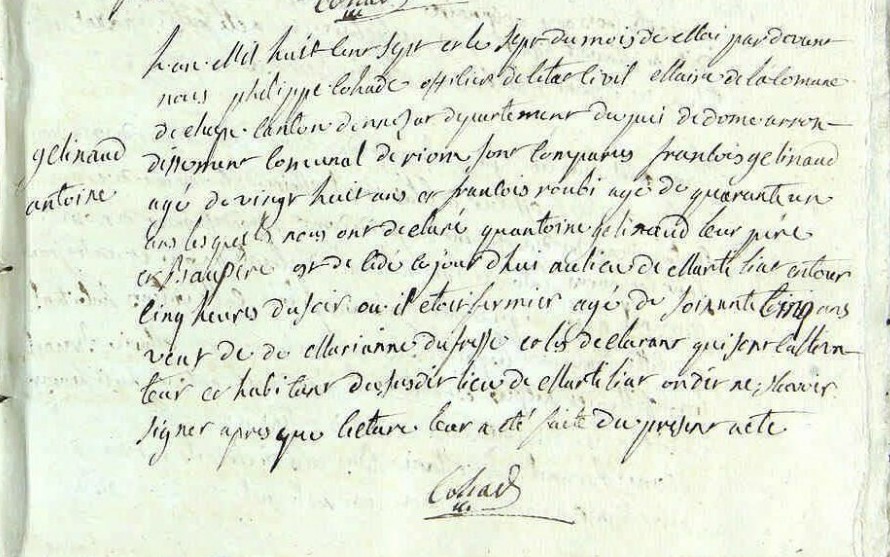 Cohad
L'an Mil huit Cent Sept et le Sept du mois de Mai par devant
nous philippe Cohade officier de letat Civil Maire de la Comune
de canton dennezat departement du pui de dome arron-
dissement Comunal de riom sont Comparus francois gelinaud
gelinaud
antoine
agé de vingt huit ans et francois roubi age de quarante un
ans lesquels nous ont declaré quantoine gelinaud leur pére
et Beaupére est decedé ce jourd'hui au lieu de Martiliat entour
Cinq heures du soir ou il etoit fermier agé de soixante Cinq ans
veuf de de Marianne dufresse et les declarant qui sont Cultiva-
teur et habitant du susdit lieu de Martiliat ont dit ne scavoir
signer apres que lecture leur a été faite du present acte
Cohad